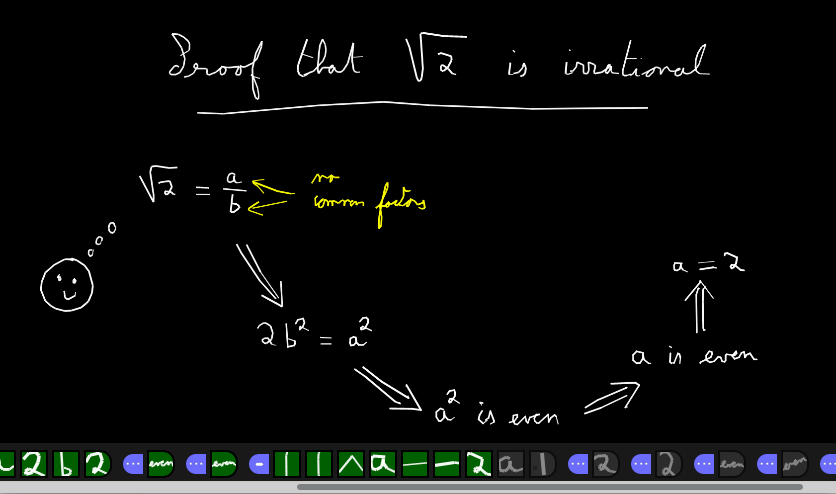 Proof that √2 is irrational
√2 = a/b
no
common factors
2b² = a²
a² is even
a is even
a = 2
2 b 2 ... even ... even - | | ^ a — — 2 a 1 ... 2 ... 2 ... even ... even ...